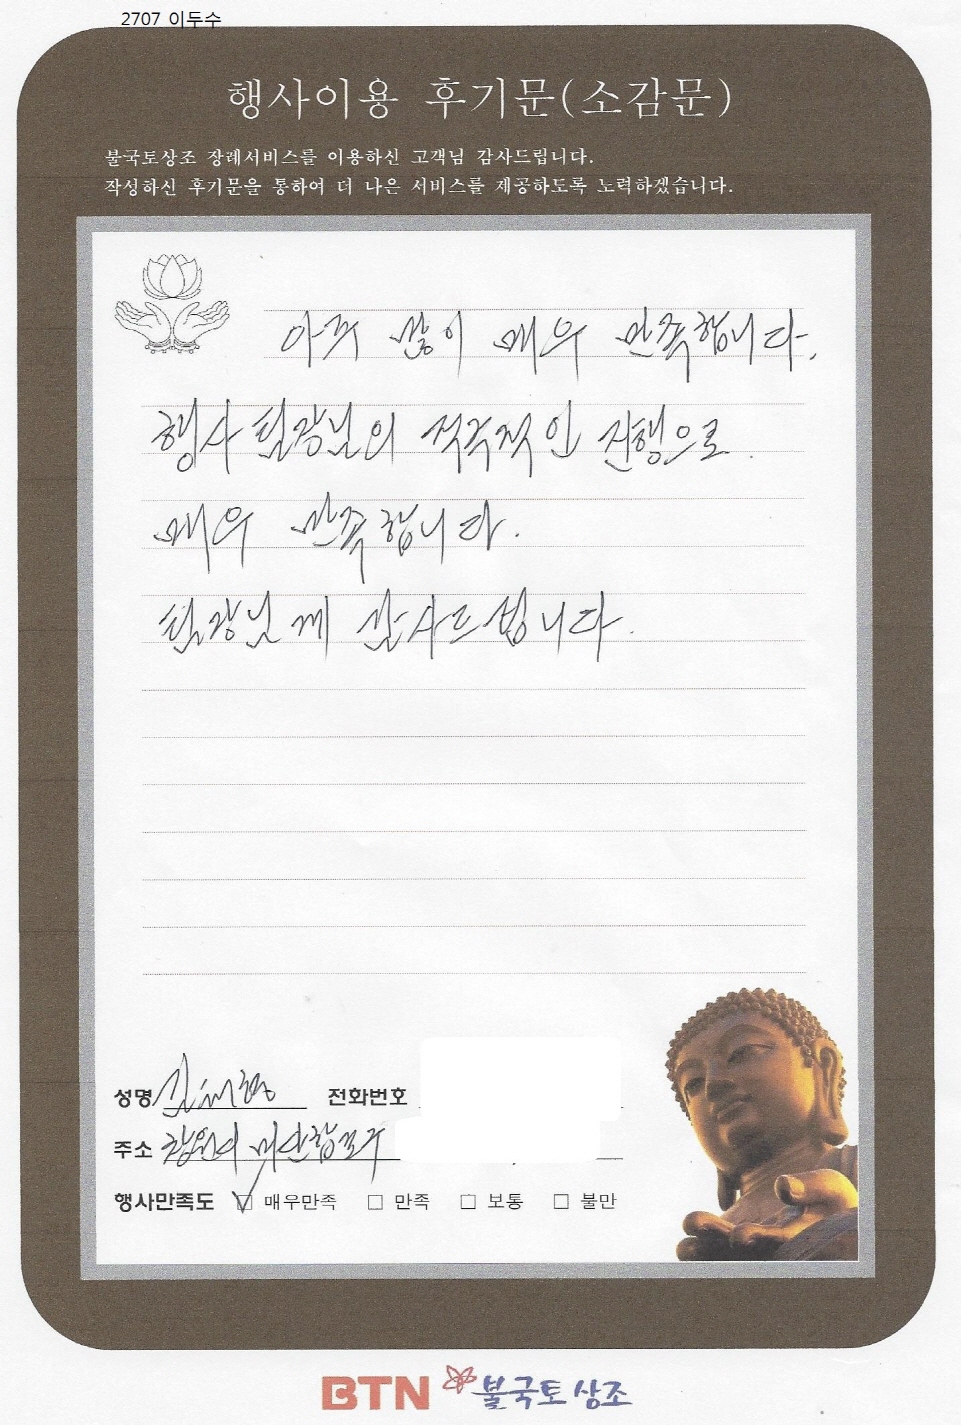 2707 이두수
행사이용 후기문(소감문)
불국토상조 장례서비스를 이용하신 고객님 감사드립니다.
작성하신 후기문을 통하여 더 나은 서비스를 제공하도록 노력하겠습니다.
아주 많이 매우 만족합니다.
행사 팀장님의 적극적인 진행으로
매우 만족합니다.
팀장님께 감사드립니다.
성명 전화번호
주소 창원시 마산합포구
행사만족도 ☑ 매우만족 □ 만족 □ 보통 □ 불만
BTN 불국토상조